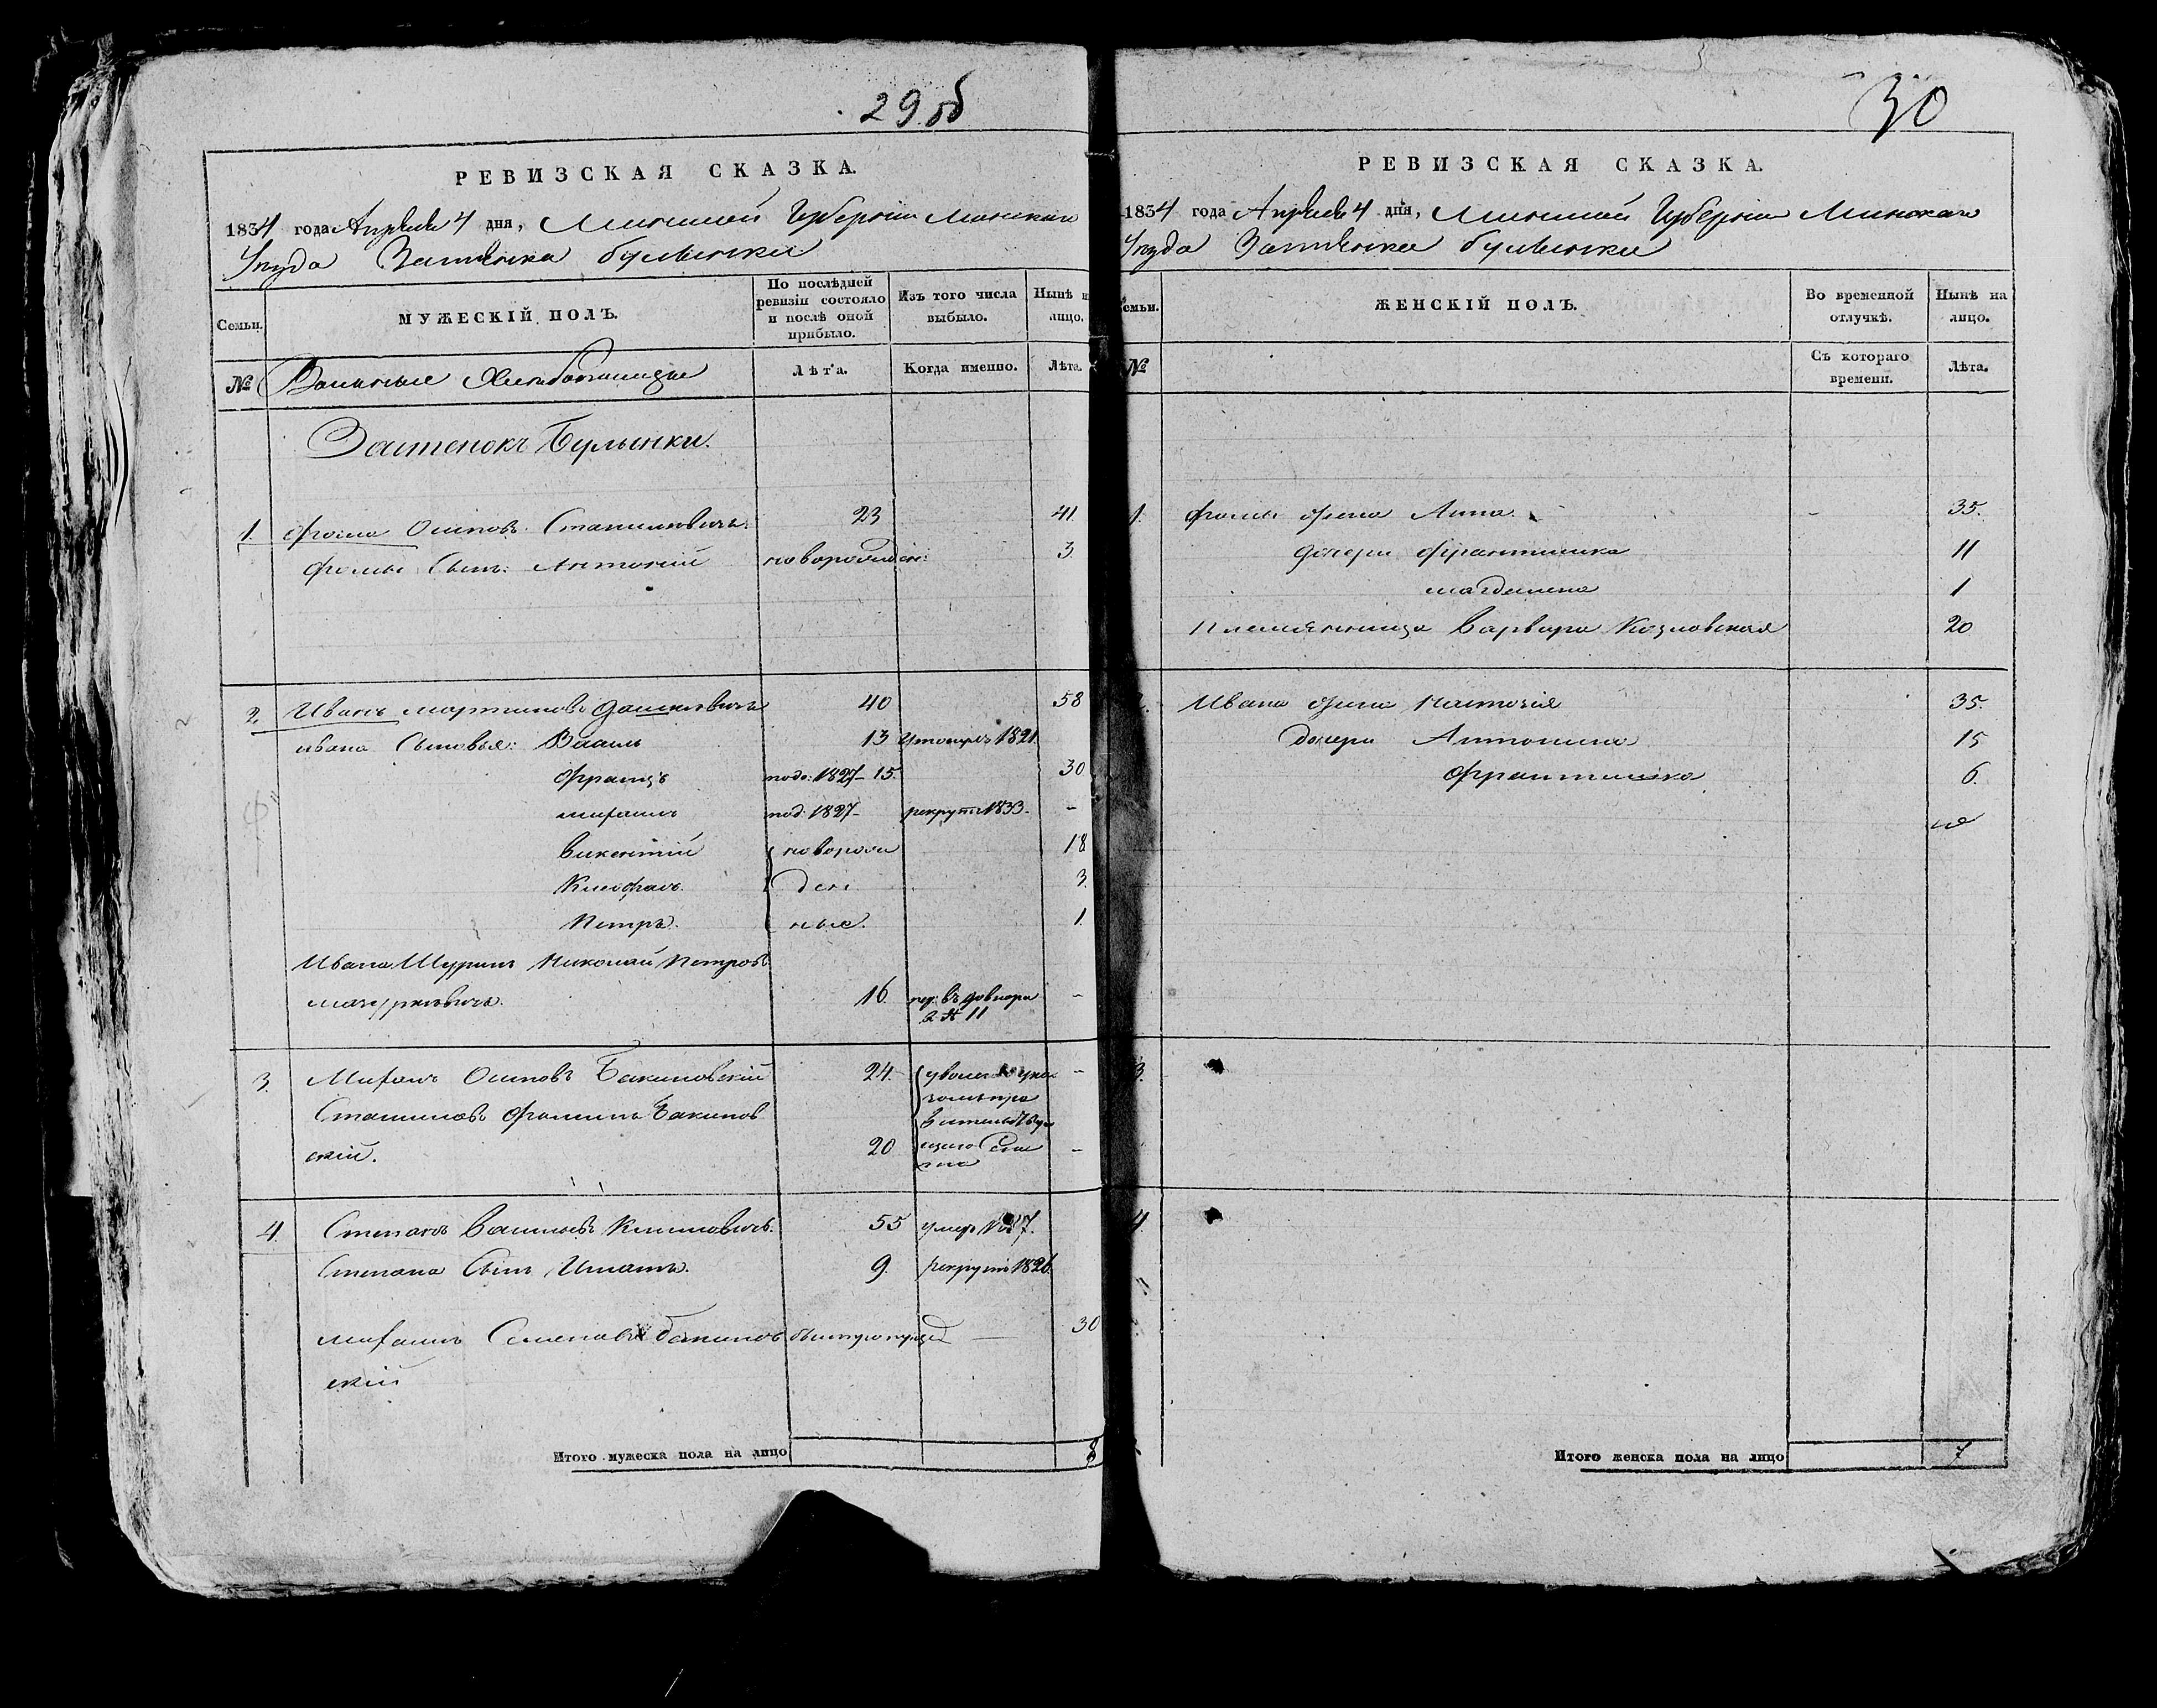 29 об
РЕВИЗСКАЯ СКАЗКА.
1834 года Апреля 4 дня, Минской Губернии Минскаго
Уезда Застенка Булынки
Семьи.
МУЖЕСКІЙ ПОЛЪ.
По послѣдней ревизіи состояло и послѣ оной прибыло.
Изъ того числа выбыло.
Нынѣ н лицо.
№ Вольные Хлебопашцы
Лѣта.
Когда именно.
Лѣта.
Застенокъ Булынки.
1. Фома Осиповъ Станилевичъ. 23 41
Фомы Сынъ: Антоній новорожден: 3
2. Иванъ Мартиновъ Дашкевичъ 40 58
Ивана Сыновья: Василь 13 1821
Францъ под: 1827 – 15. 30
Михаилъ под. 1827 – рекрутъ 1833. –
Викентій новорож 18
Клеофасъ. ден 3.
Петръ. ные. 1.
Ивана Шуринъ Николай Петровъ
Мазуркевичъ. 16. пер: въ
2 № 11
3. Осиповъ Бакиновскій 24. –
Станиславъ Фоминъ Бакинов
скій. 20 –
4. Степанъ Васильевъ Климовичъ. 55 умер
Степана Сынъ Игнатъ. 9. рекрутъ 1826.
Михаилъ 30
скій
Итого мужеска пола на лицо 8
30
РЕВИЗСКАЯ СКАЗКА.
1834 года Апреля 4 дня, Минской Губерніи Минскаго
Уезда Застенка Булынки
емьи.
ЖЕНСКІЙ ПОЛЪ.
Во временной отлучкѣ.
Нынѣ на лицо.
№
Съ котораго времени.
Лѣта.
1. Фомы жена Анна. – 35.
дочери Франтишка 11
Магдалена 1
Племянница Варвара Козловская 20
2. Ивана жена 35.
дочери Антонина 15
Франтишка 6.
3.
4
Итого женска пола на лицо 7